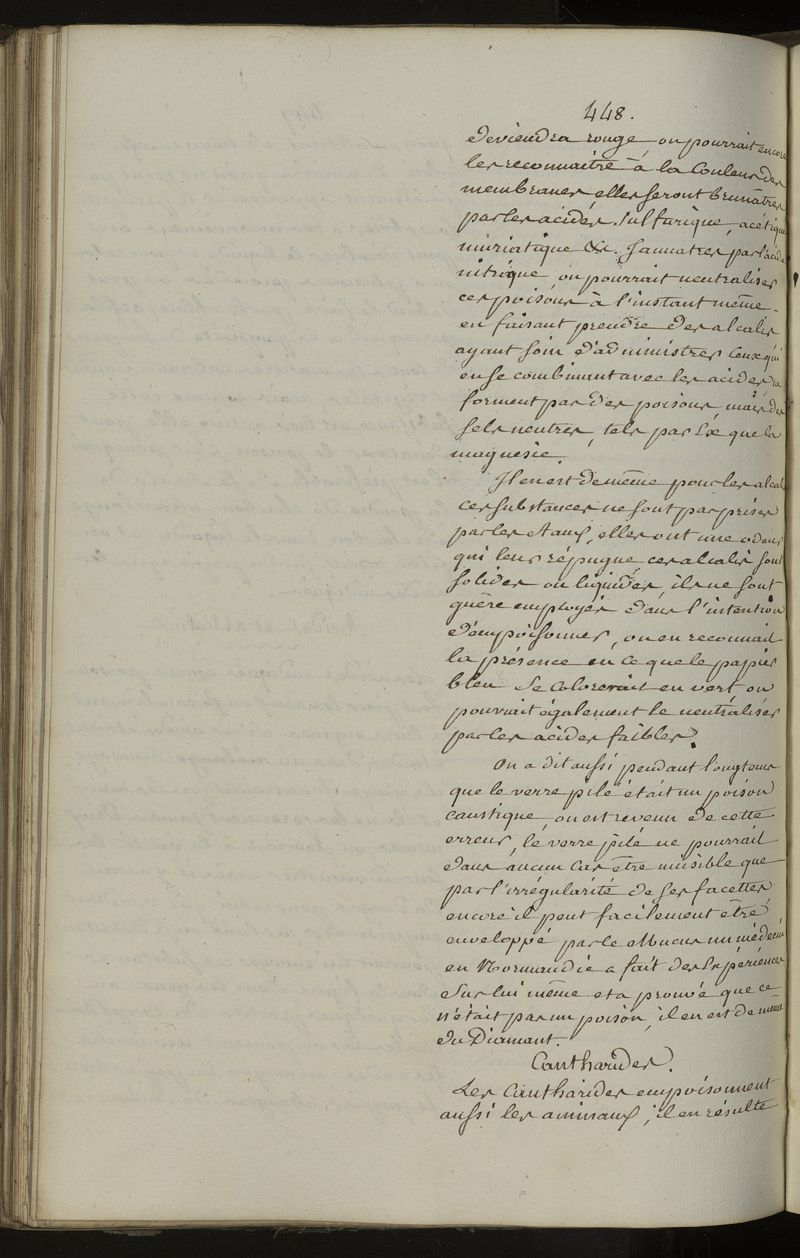 448.
deviendra rouge, on pourrait encore
les reconnaitre à la Couleur des
membranes, elles seront brunâtres
par les acides, sulfurique, acétique
muriatique &c. Jaunatres par l'acide
nitrique, on pourrait neutraliser
ces poisons à l'instant même
en faisant prendre des alcalis
ayant soin d'administrer Ceux qui
en se combinant avec les acides, ne
forment pas des poisons mais des
sels neutres, tels par Ex que la
magnésie.
Il en est de même pour les alcalis
ces substances ne sont pas prises
par les , elles ont une odeur
qui leur répugne, ces alcalis sont
solides ou liquides, ils ne sont
guère employés dans l'intention
d'empoisonner, on en reconnait
la présence en ce que le papier
bleu se colorerait en vert on
pourrait également le neutraliser
par les acides faibles.
On a dit aussi pendant longtems
que le verre pilé était un poison
caustique, on est revenu de cette
erreur, le verre pilé ne pourrait
dans aucun Cas être nuisible que
par l'irrégularité de ses facettes
encore il peut facilement être
enveloppé par le Mucus un médecin
en Normandie a fait des Expériences
sur lui même et a prouvé que ce
n'était pas un poison, il en est de même
du Diamant.
Cantharides.
Les Cantharides empoisonnent
aussi les animaux, il en résulte